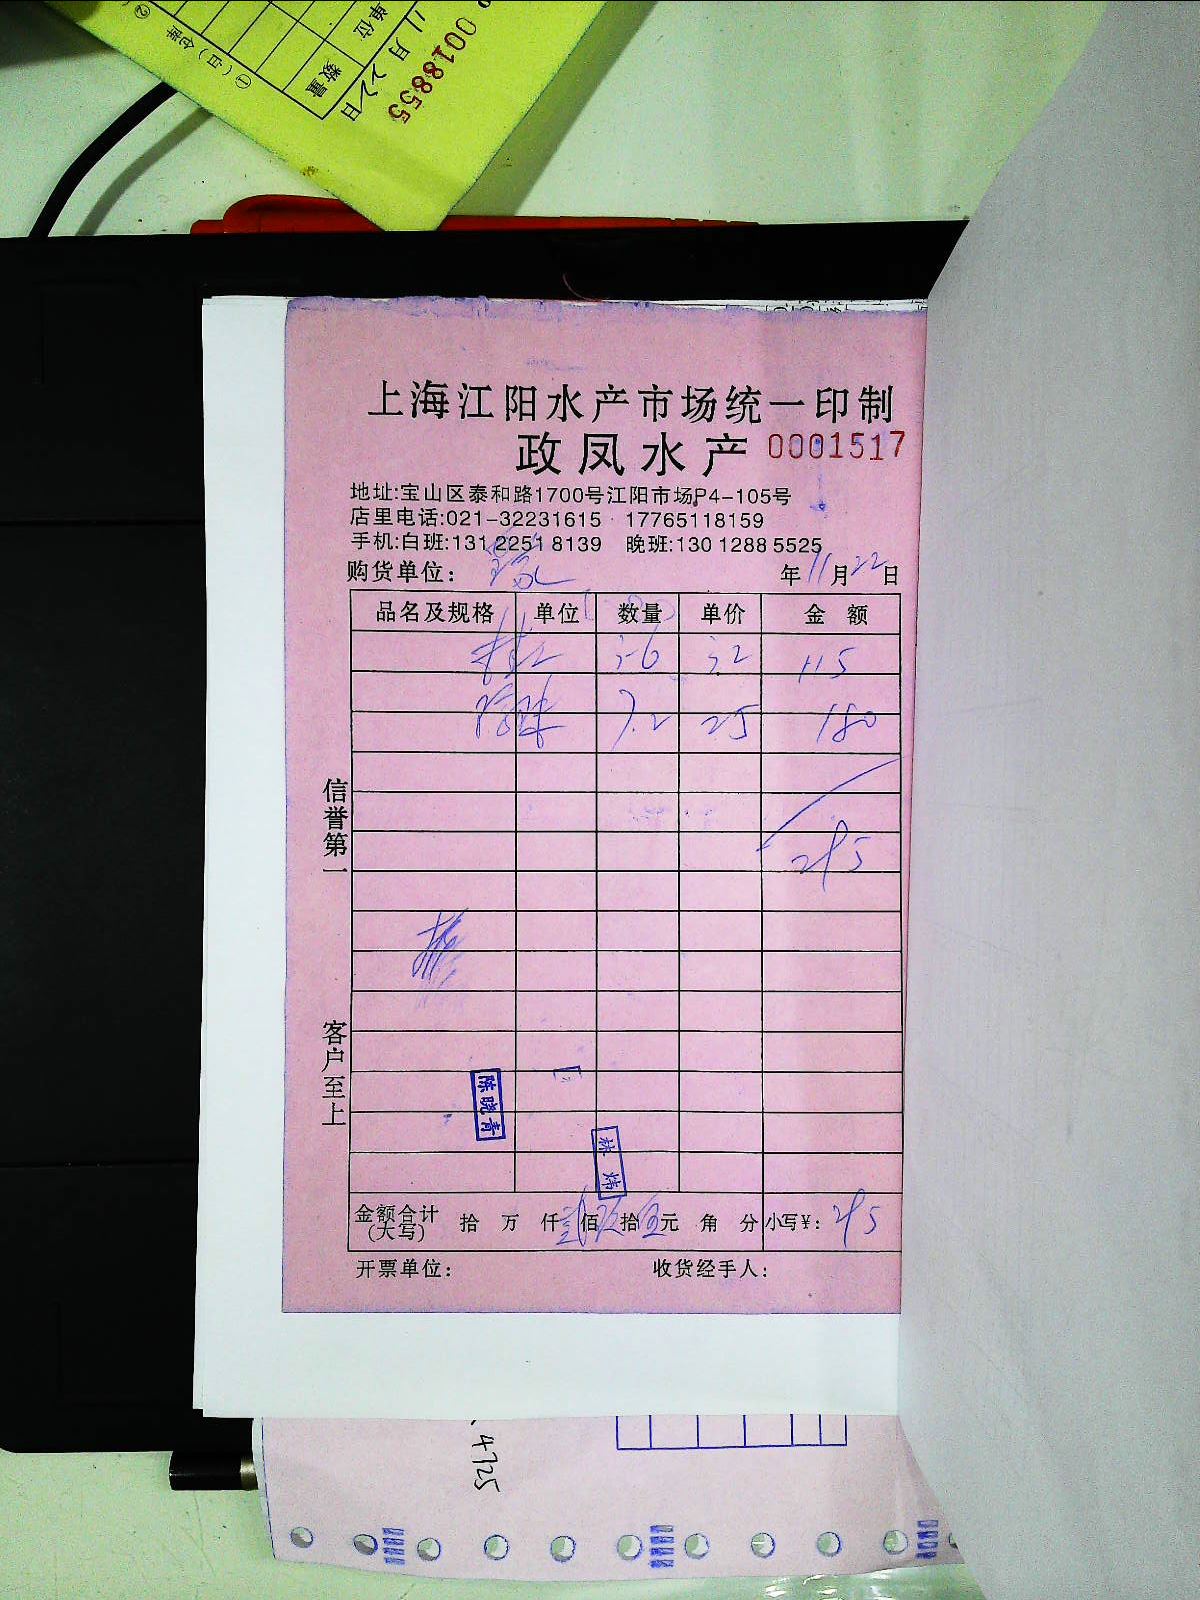 0018855
11月22日
单位
数量
①(白)仓库
②
上海江阳水产市场统一印制
政凤水产 0001517
地址:宝山区泰和路1700号江阳市场P4-105号
店里电话:021-32231615 17765118159
手机:白班:131 2251 8139 晚班:130 1288 5525
购货单位: 年11月22日
品名及规格 单位 数量 单价 金额
3.6 32 115
7.2 25 180
295
信誉第一
客户至上
陈晓青
林炜
金额合计(大写) 拾 万 仟 贰佰 玖拾 伍元 角 分 小写¥: 295
开票单位: 收货经手人:
4725